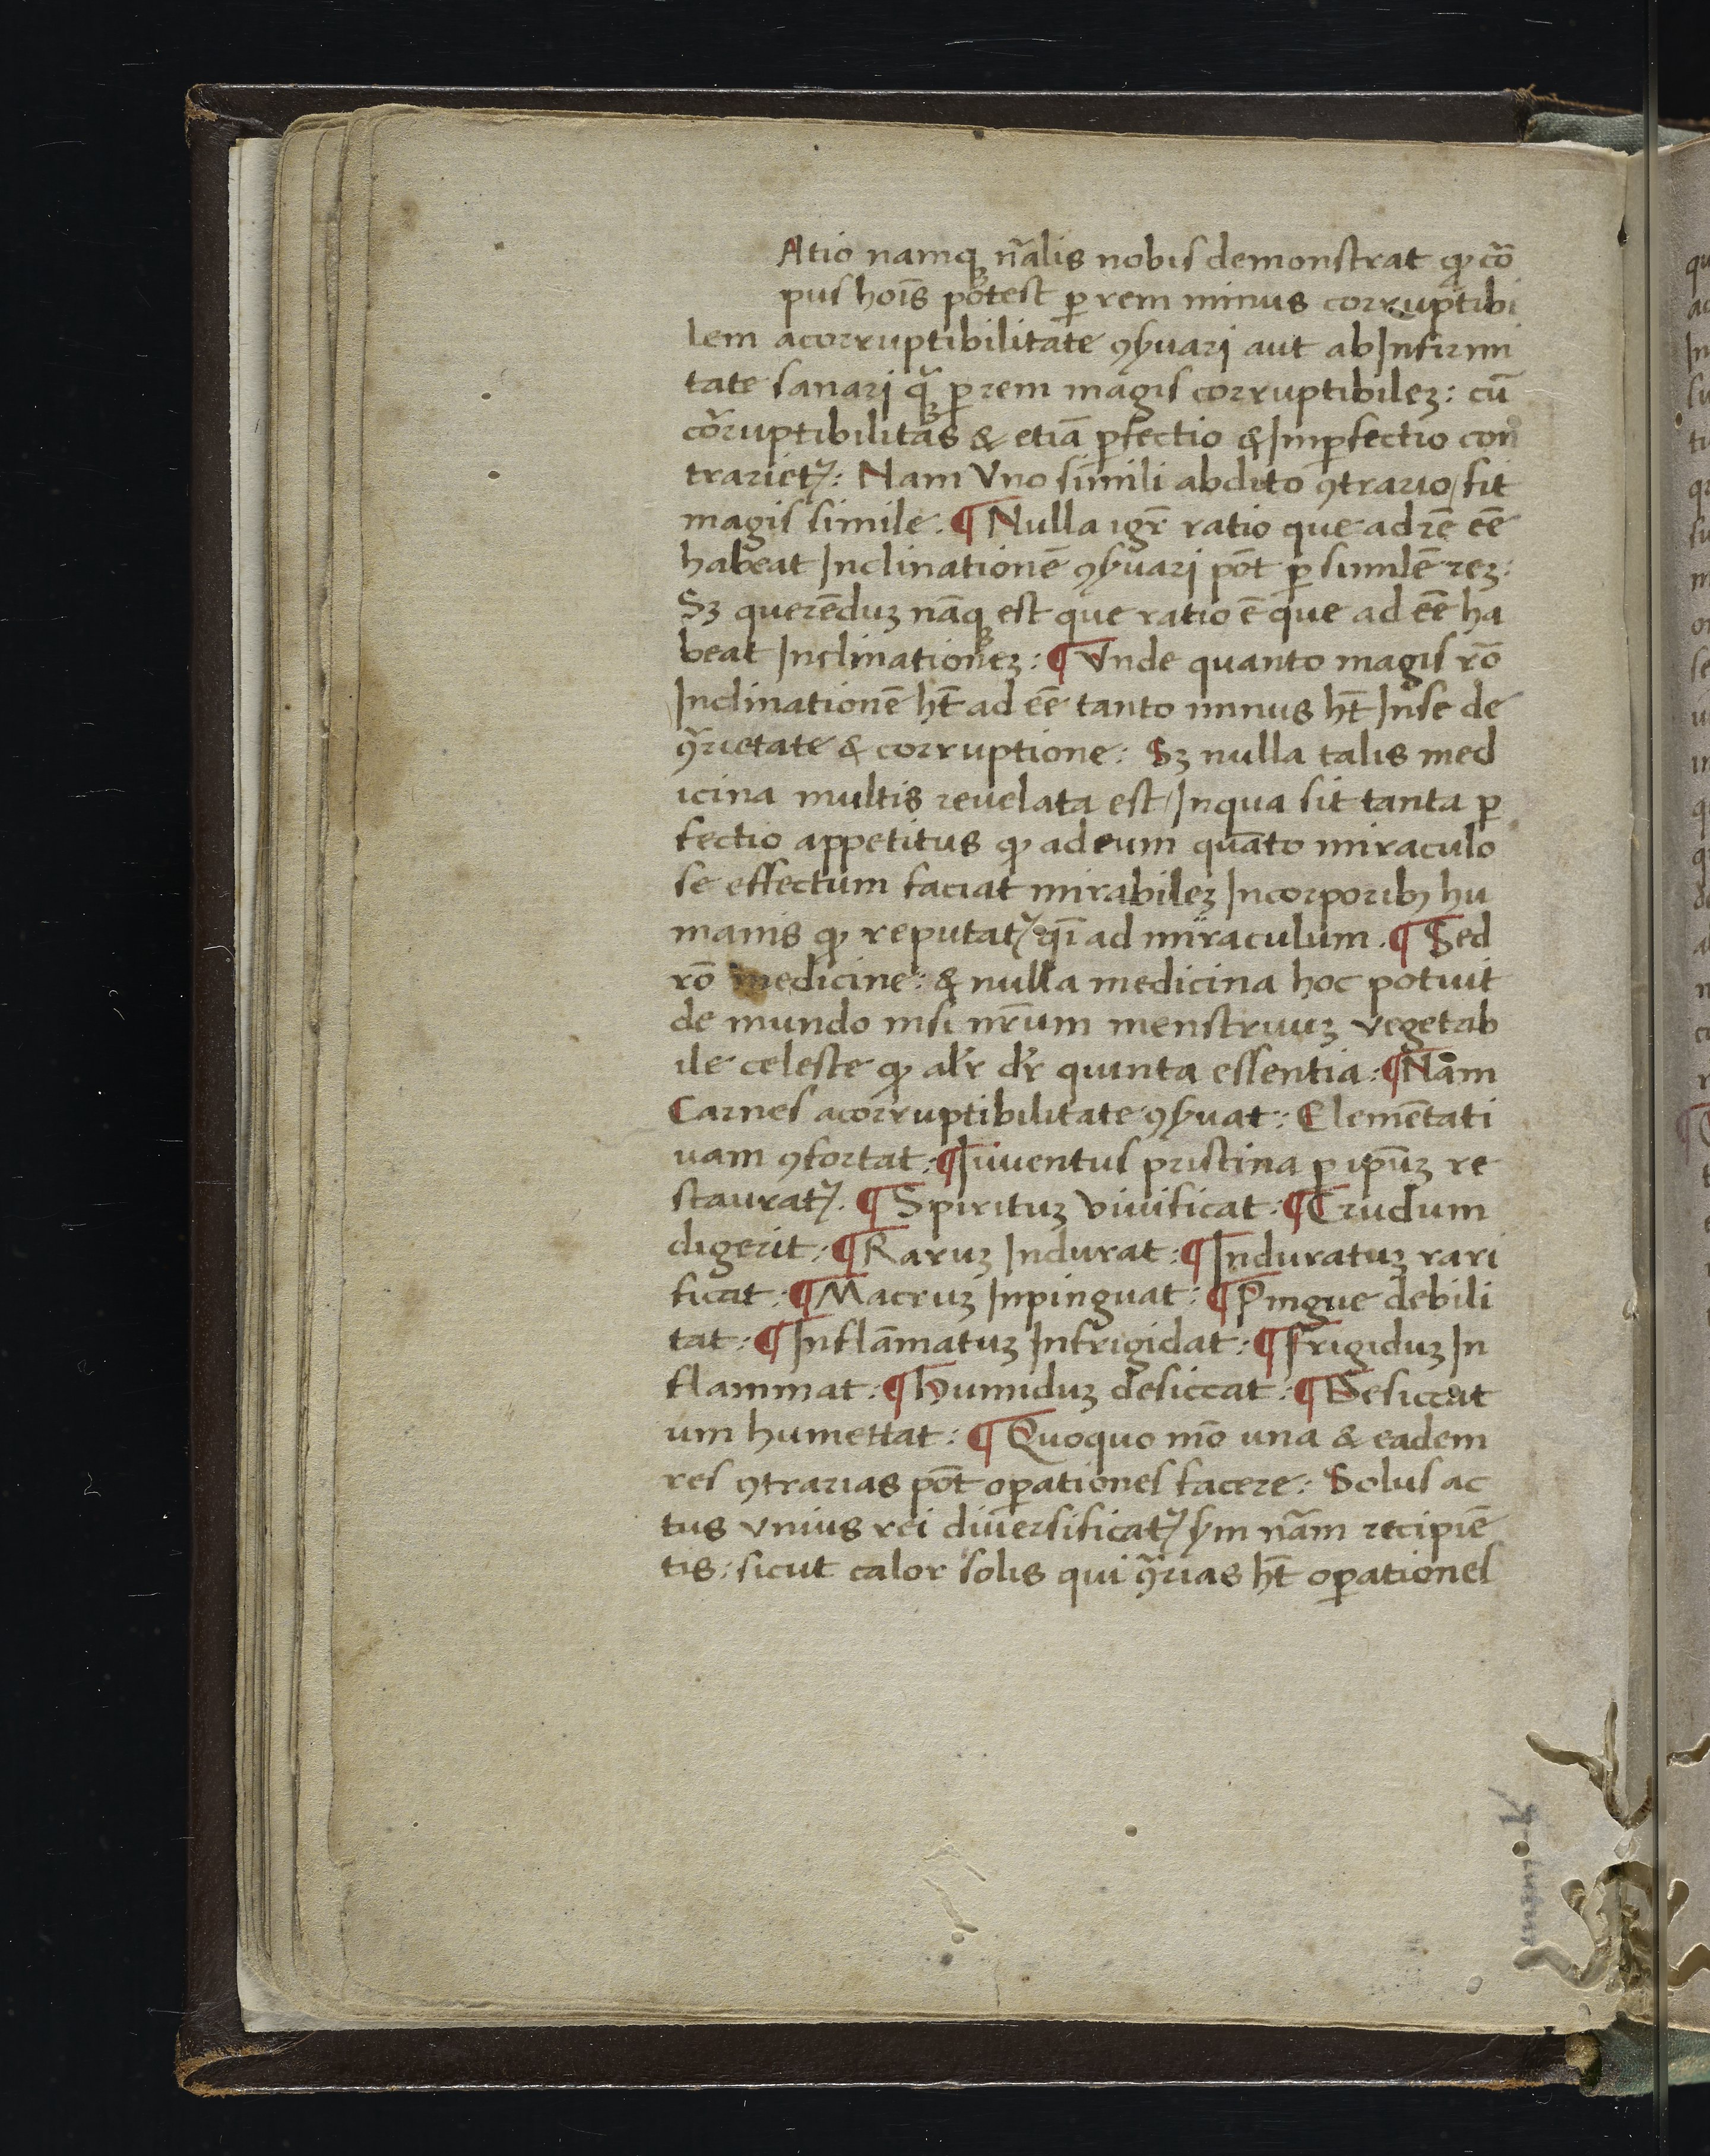 Atio namqꝫ nãlis nobis demonstrat ꝙ cõ
pus hoĩs potest ꝑ rem minus corruptibi
lem acorruptibilitate ꝯẜuari aut abInfirmi
tate sanari qꝫ̃ ꝑ rem magis corruptibileꝫ: cũ
cõruptibilitas & etiã ꝑfectio & Imꝑfectio con
trarietᷣ: Nam Vno simili abdito ꝯtrario / fit
magis simile. ¶ Nulla igr̃ ratio que ad rẽ eẽ
habeat Inclinationẽ ꝯẜuari põt ꝑ similẽ reꝫ:
Sꝫ querẽduꝫ nãqꝫ est que ratio ẽ que ad eẽ ha
beat Inclinationeꝫ: ¶ Vnde quanto magis rõ
Inclinationẽ ht̃ ad eẽ tanto minus ht̃ Inse de
ꝯ̃rietate & corruptione: Sꝫ nulla talis med
icina multis reuelata est / Inqua sit tanta ꝑ
fectio appetitus ꝙ ad eum quãto miraculo
se effectum faciat mirabileꝫ Incorporibꝫ hu
manis ꝙ reputatᷣ qĩ ad miraculum. ¶ Sed
rõ medicine: & nulla medicina hoc potuit
de mundo nisi nr̃um menstruuꝫ vegetab
ile celeste ꝙ alr̃ dr̃ quinta essentia: ¶ Nam
Carnes acorruptibilitate ꝯẜuat: Elemẽtati
uam ꝯfortat: ¶ Iuuentus pristina ꝑ ip̃uꝫ re
stauratᷣ. ¶ Spirituꝫ viuificat: ¶ Crudum
digerit: ¶ Raruꝫ Indurat: ¶ Induratuꝫ rari
ficat: ¶ Macruꝫ Inpinguat: ¶ Pingue debili
tat: ¶ Inflãmatuꝫ Infrigidat: ¶ frigiduꝫ In
flammat: ¶ Humiduꝫ desiccat: ¶ Desiccat
um humettat: ¶ Quoquo mõ una & eadem
res ꝯtrarias põt oꝑationes facere: Solus ac
tus vnius rei diuersificatᷣ ẜm nãm recipiẽ
tis: sicut calor solis qui ꝯ̃rias ht̃ oꝑationes